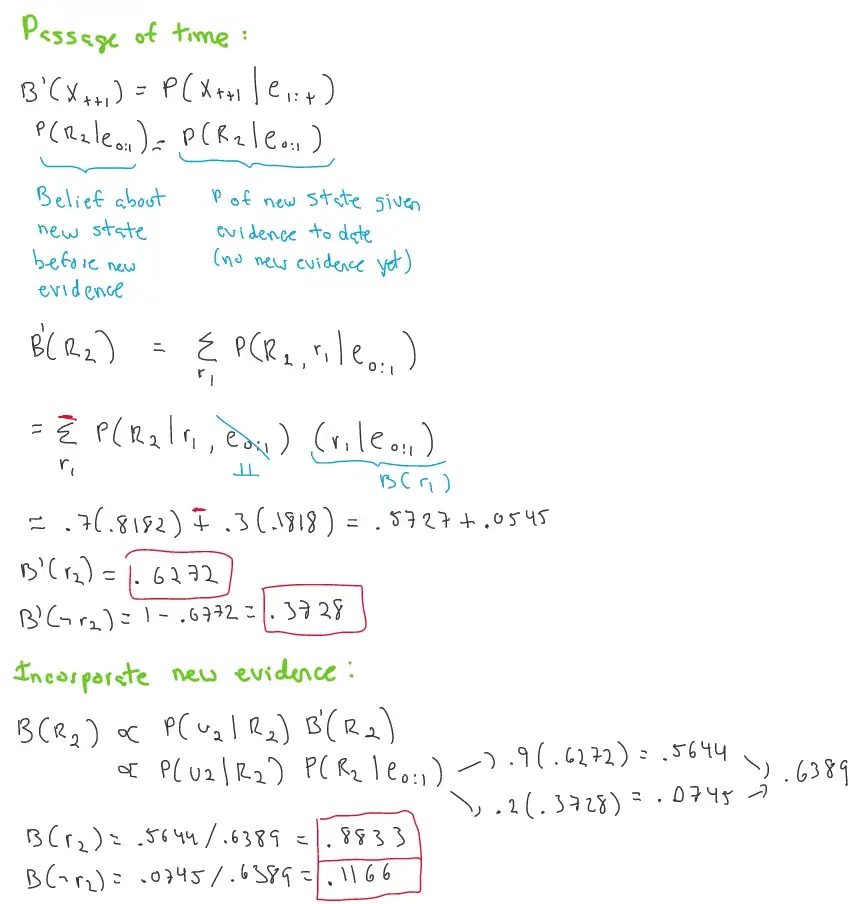 Passage of time :
B'(X_{t+1}) = P(X_{t+1} | e_{1:t})
P(R_2|e_{0:1}) = P(R_2|e_{0:1})
Belief about new state before new evidence
P of new state given evidence to date (no new evidence yet)
B'(R_2) = Σ_{r_1} P(R_2, r_1 | e_{0:1})
= Σ_{r_1} P(R_2 | r_1, e_{0:1}) (r_1 | e_{0:1})
⫫ B(r_1)
= .7(.8182) + .3(.1818) = .5727 + .0545
B'(r_2) = .6272
B'(¬r_2) = 1 - .6272 = .3728
Incorporate new evidence :
B(R_2) ∝ P(u_2 | R_2) B'(R_2)
∝ P(u_2 | R_2) P(R_2 | e_{0:1}) → .9(.6272) = .5644 ↘ .6389
↘ .2(.3728) = .0745 →
B(r_2) = .5644/.6389 = .8833
B(¬r_2) = .0745/.6389 = .1166